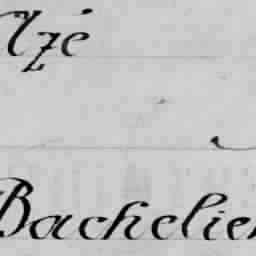 Azé
Bachelier